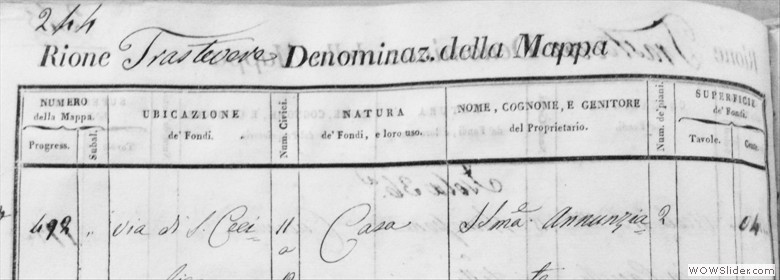 244
Rione Trastevere Denominaz. della Mappa
NUMERO della Mappa.
Progress.
Subal.
UBICAZIONE de' Fondi.
Num. Civici.
NATURA de' Fondi, e loro uso.
NOME, COGNOME, E GENITORE del Proprietario.
Num. de' piani.
SUPERFICIE de' Fondi.
Tavole.
Cent.
492 " via di S. Ceci= 11 Casa SSma Annunzia= 2 04
WOWSlider.com